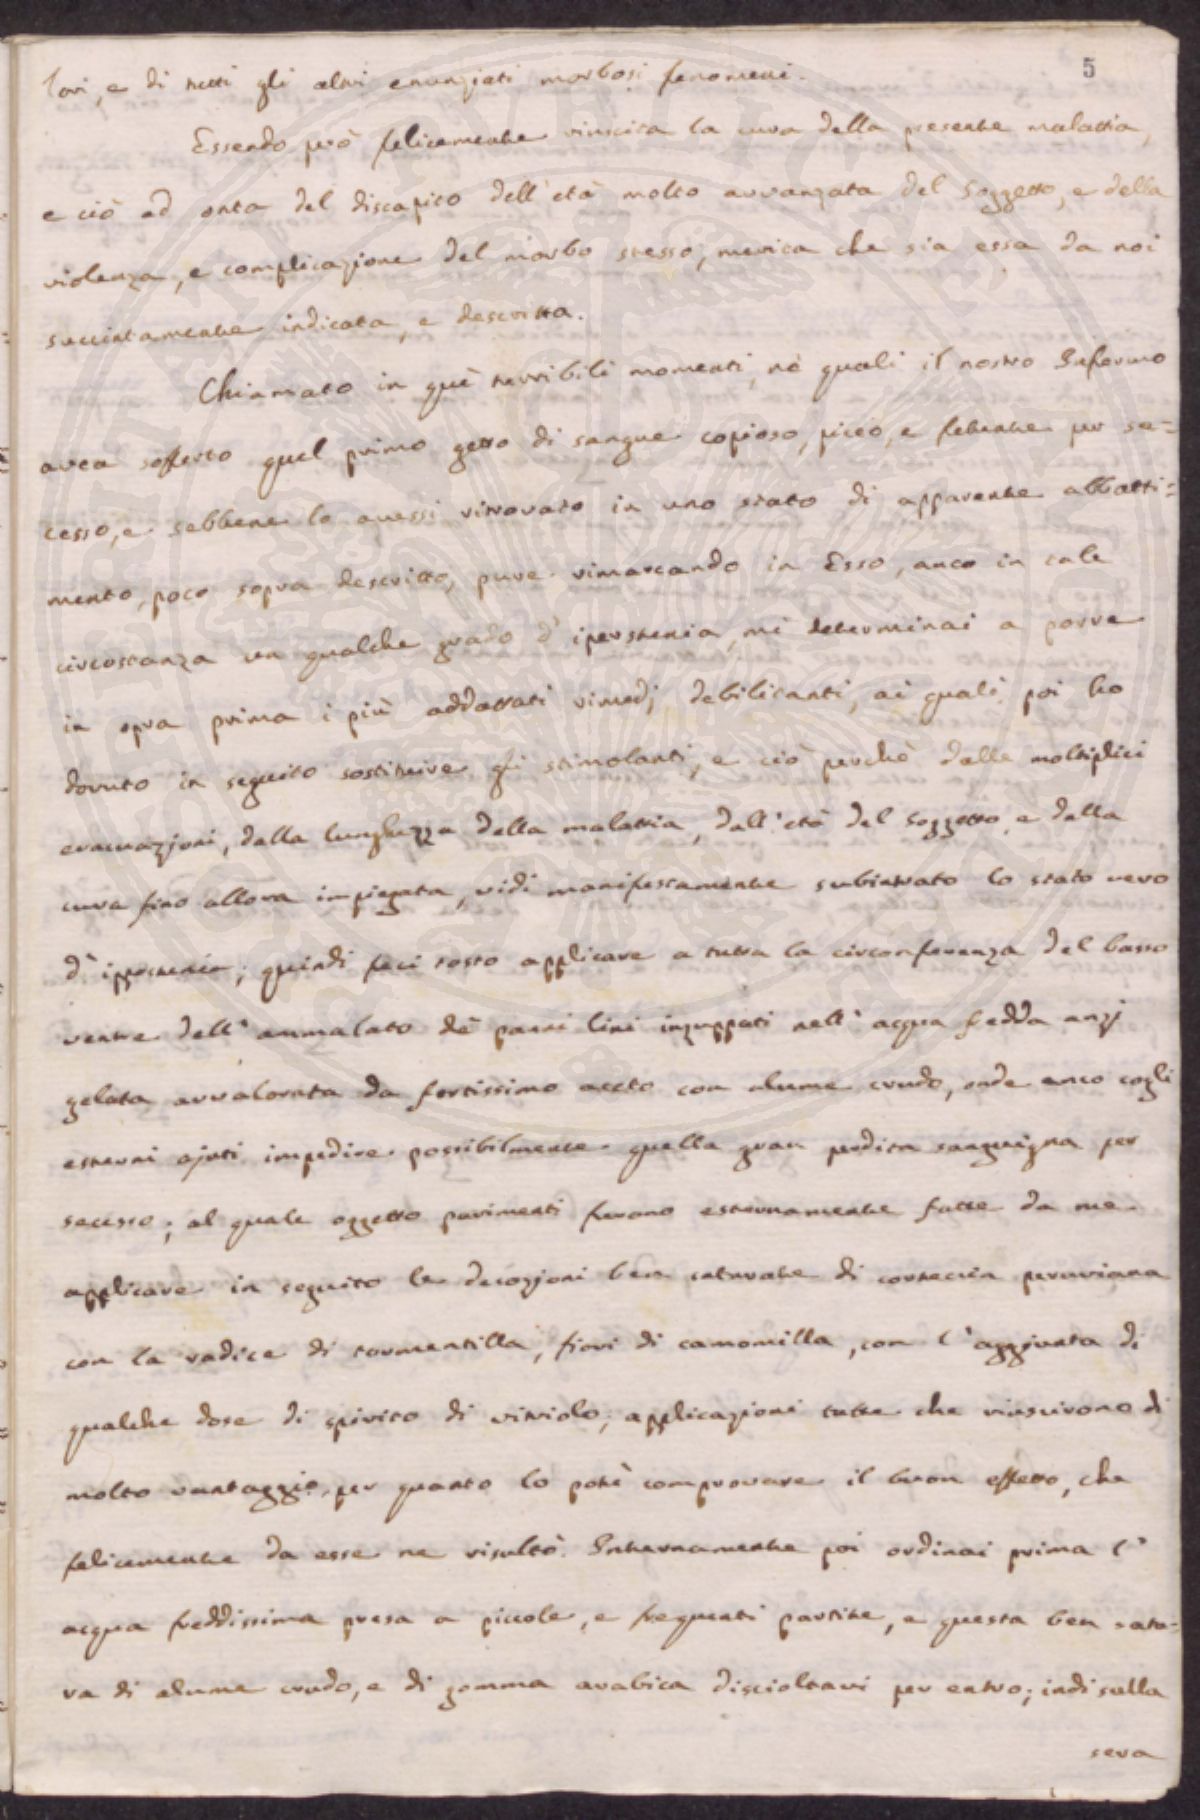 5
lori, e di tutti gli altri enunziati morbosi fenomeni.
Essendo però felicemente riuscita la cura della presente malattia,
e ciò ad onta del discapito dell'età molto avvanzata del Soggetto, e della
violenza, e complicazione del morbo stesso, merita che sia essa da noi
succintamente indicata, e descritta.
Chiamato in què terribili momenti, nè quali il nostro Infermo
avea sofferto quel primo getto di sangue copioso, piceo, e fetente per se=
cesso, e sebbene lo avessi ritrovato in uno stato di apparente abbatti=
mento, poco sopra descritto, pure rimarcando in Esso, anco in tale
circostanza un qualche grado d'iperstenia, mi determinai a porre
in opra prima i più addattati rimedj debilitanti, ai quali poi ho
dovuto in seguito sostituire gli stimolanti, e ciò perchè dalle moltiplici
evacuazioni, dalla lunghezza della malattia, dall'età del Soggetto, e dalla
cura fino allora impiegata, vidi manifestamente subintrato lo stato vero
d'ipostenia; quindi feci tosto applicare a tutta la circonferenza del basso
ventre dell'ammalato dè panni lini inzuppati nell'acqua fredda anzi
gelata avvalorata da fortissimo aceto con alume crudo, onde anco cogli
esterni ajuti impedire possibilmente quella gran perdita sanguigna per
secesso; al quale oggetto parimenti furono esternamente fatte da me
applicare in seguito le decozioni ben saturate di corteccia peruviana
con la radice di tormentilla, fiori di camomilla, con l'aggiunta di
qualche dose di spirito di vitriolo, applicazioni tutte che riuscirono di
molto vantaggio, per quanto lo potè comprovare il buon effetto, che
felicemente da esse ne risultò. Internamente poi ordinai prima l'
acqua freddissima presa a piccole, e frequenti partite, e questa ben satu=
ra di alume crudo, e di gomma arabica discioltavi per entro; indi sulla
sera